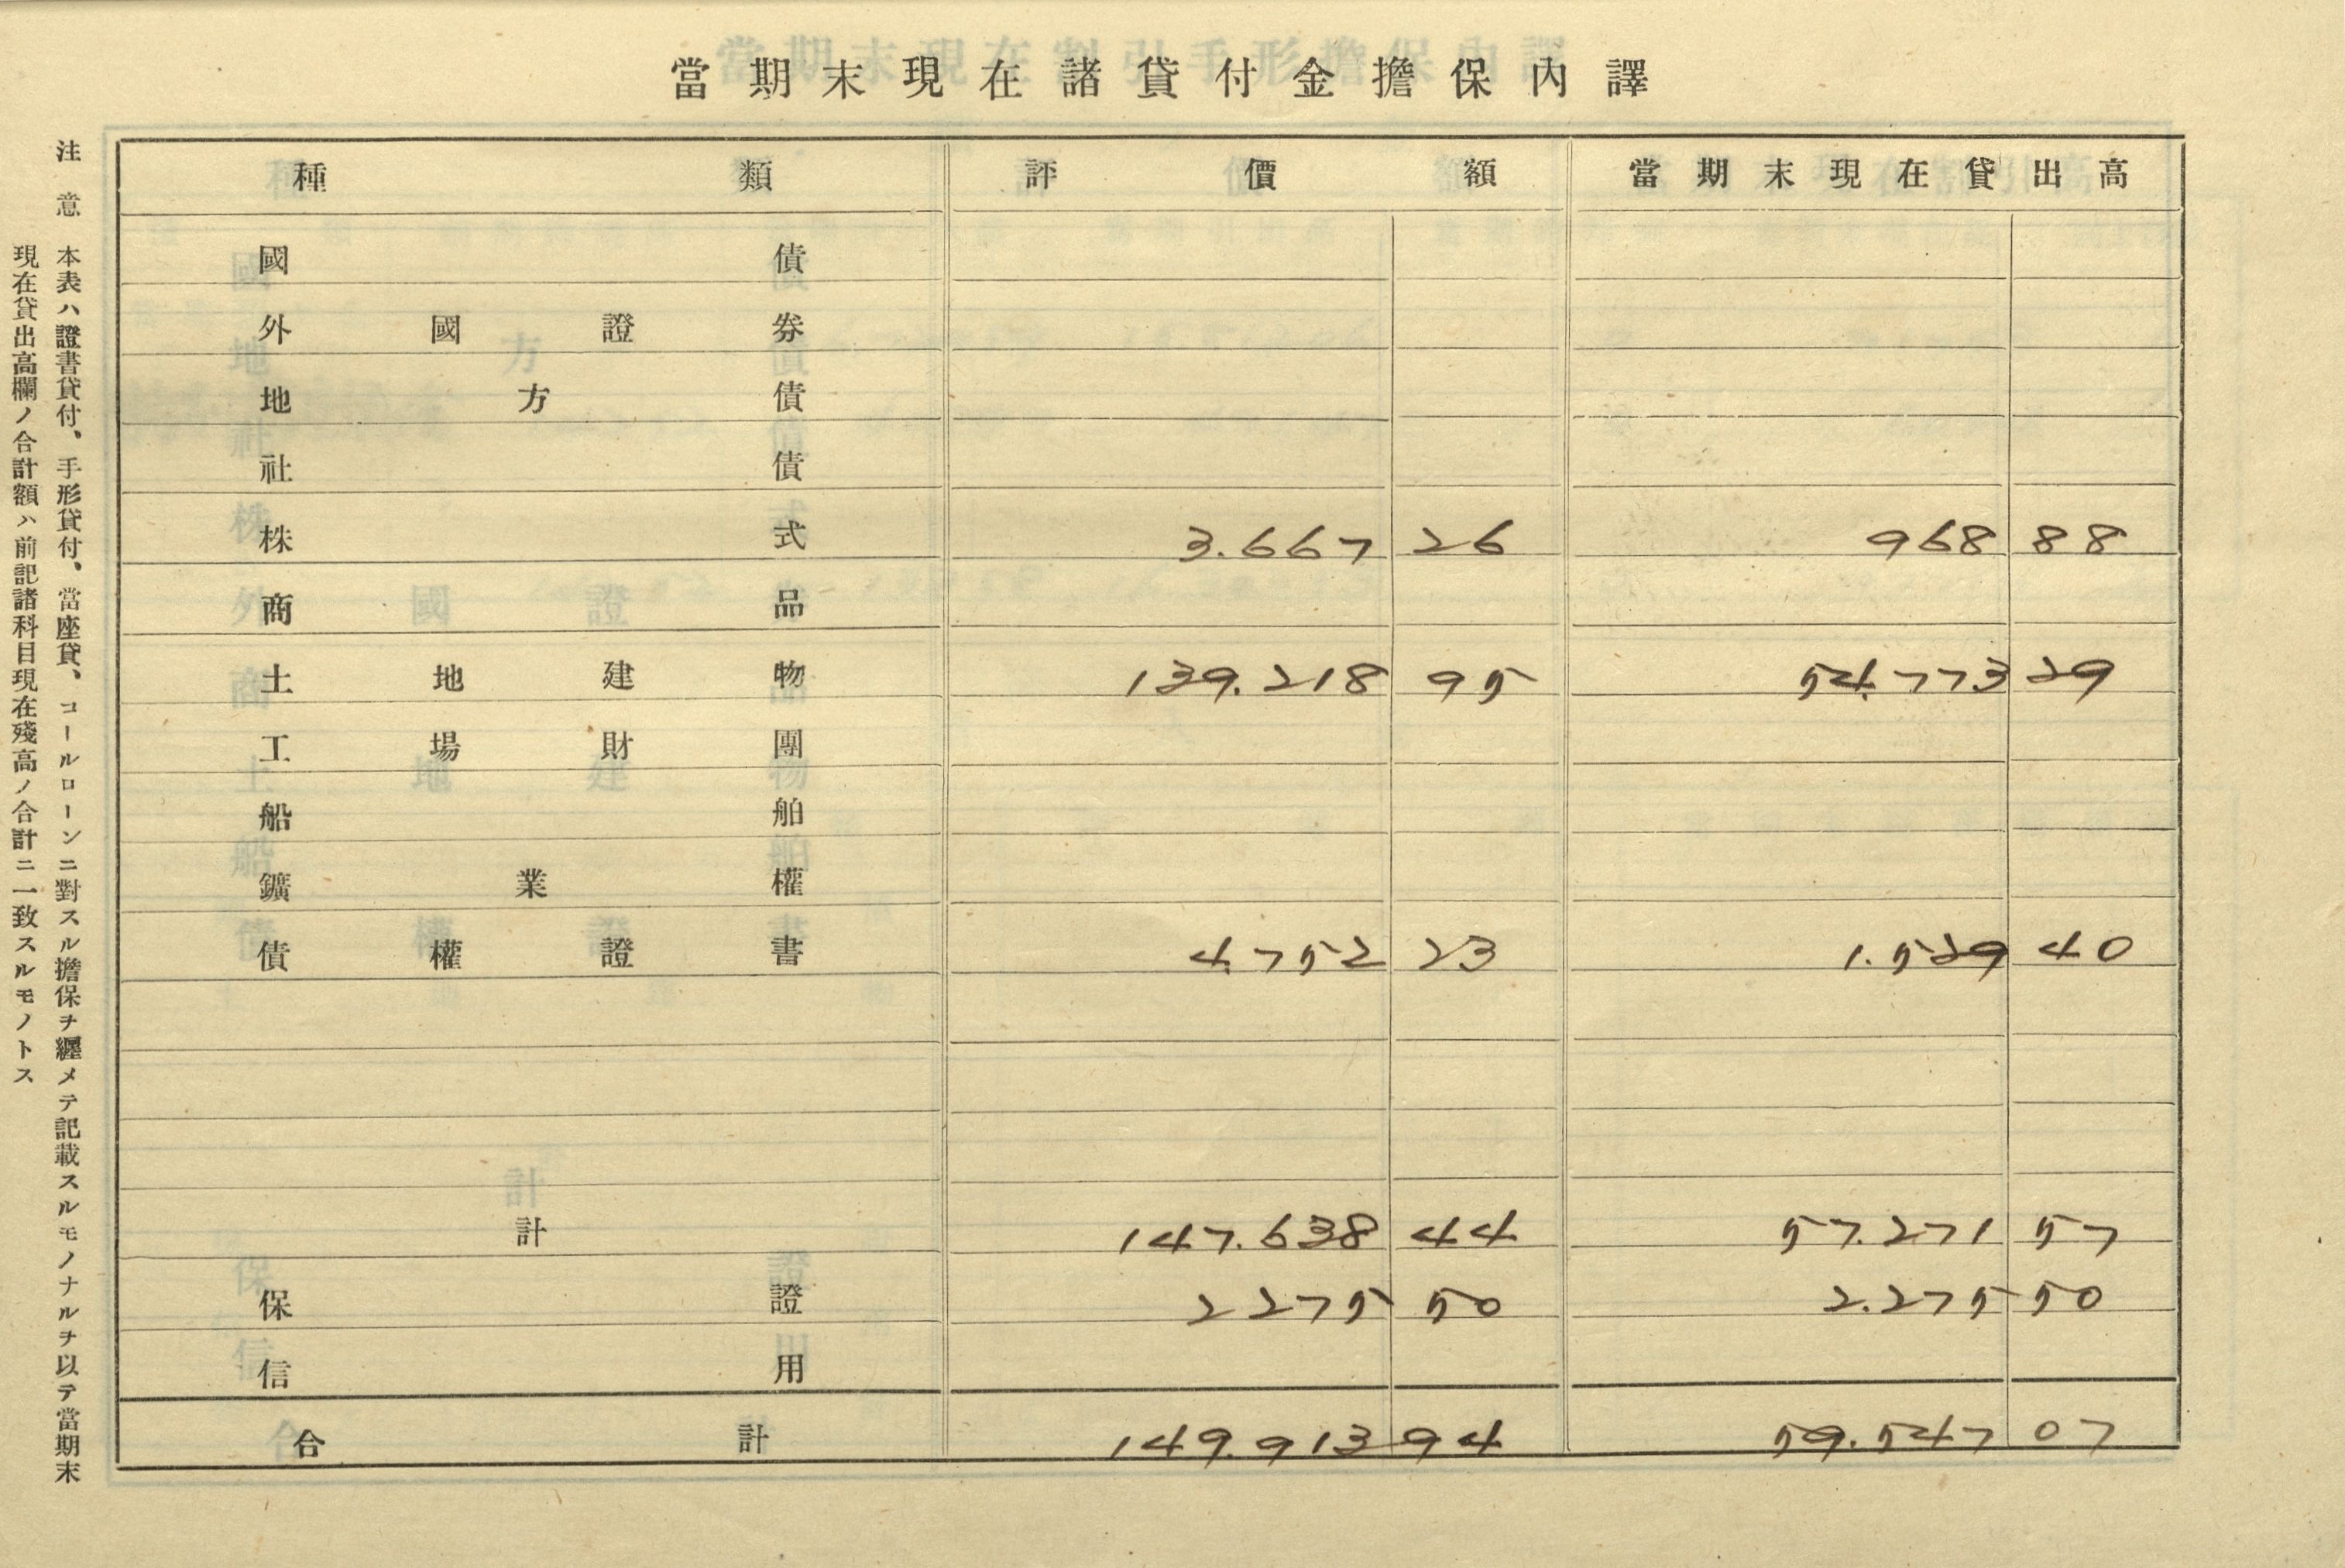 當期末現在諸貸付金擔保内譯
種類 評價額 當期末現在貸出高
國債
外國證券
地方債
社債
株式 3.667 26 968 88
商品
土地建物 139.218 95 54.773 29
工場財團
船舶
鑛業權
債權證書 4.752 23 1.529 40
計 147.638 44 57.271 57
保證 2275 50 2.275 50
信用
合計 149.913 94 59.547 07
注意 本表ハ證書貸付、手形貸付、當座貸、コールローンニ對スル擔保ヲ纒メテ記載スルモノナルヲ以テ當期末
現在貸出高欄ノ合計額ハ前記諸科目現在殘高ノ合計ニ一致スルモノトス